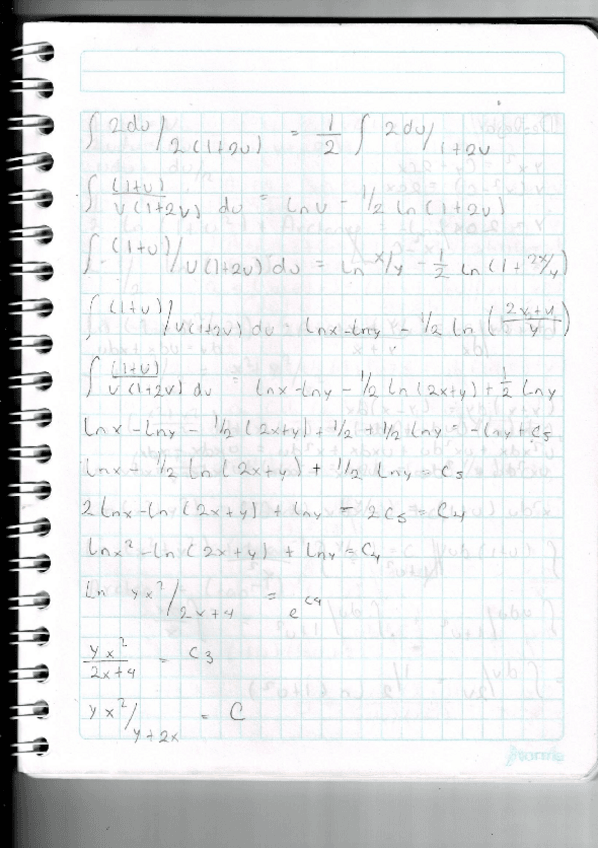 ∫ 2du/2(1+2u) = 1/2 ∫ 2du/1+2v
∫ (1+v)/v(1+2v) dv = lnv - 1/2 ln(1+2v)
∫ (1+v)/v(1+2v) dv = ln x/y - 1/2 ln(1+2x/y)
∫ (1+v)/v(1+2v) dv = lnx-lny - 1/2 ln(2x+y/y)
∫ (1+v)/v(1+2v) dv = lnx-lny - 1/2 ln(2x+y) + 1/2 lny
lnx - lny - 1/2 (2x+y) + 1/2 + 1/2 lny = -lny + C5
lnx - 1/2 ln(2x+y) + 1/2 lny = C5
2lnx - ln(2x+y) + lny = 2C5 = C4
lnx² - ln(2x+y) + lny = C4
Ln yx²/2x+y = e^C4
yx²/2x+y = C3
yx²/y+2x = C